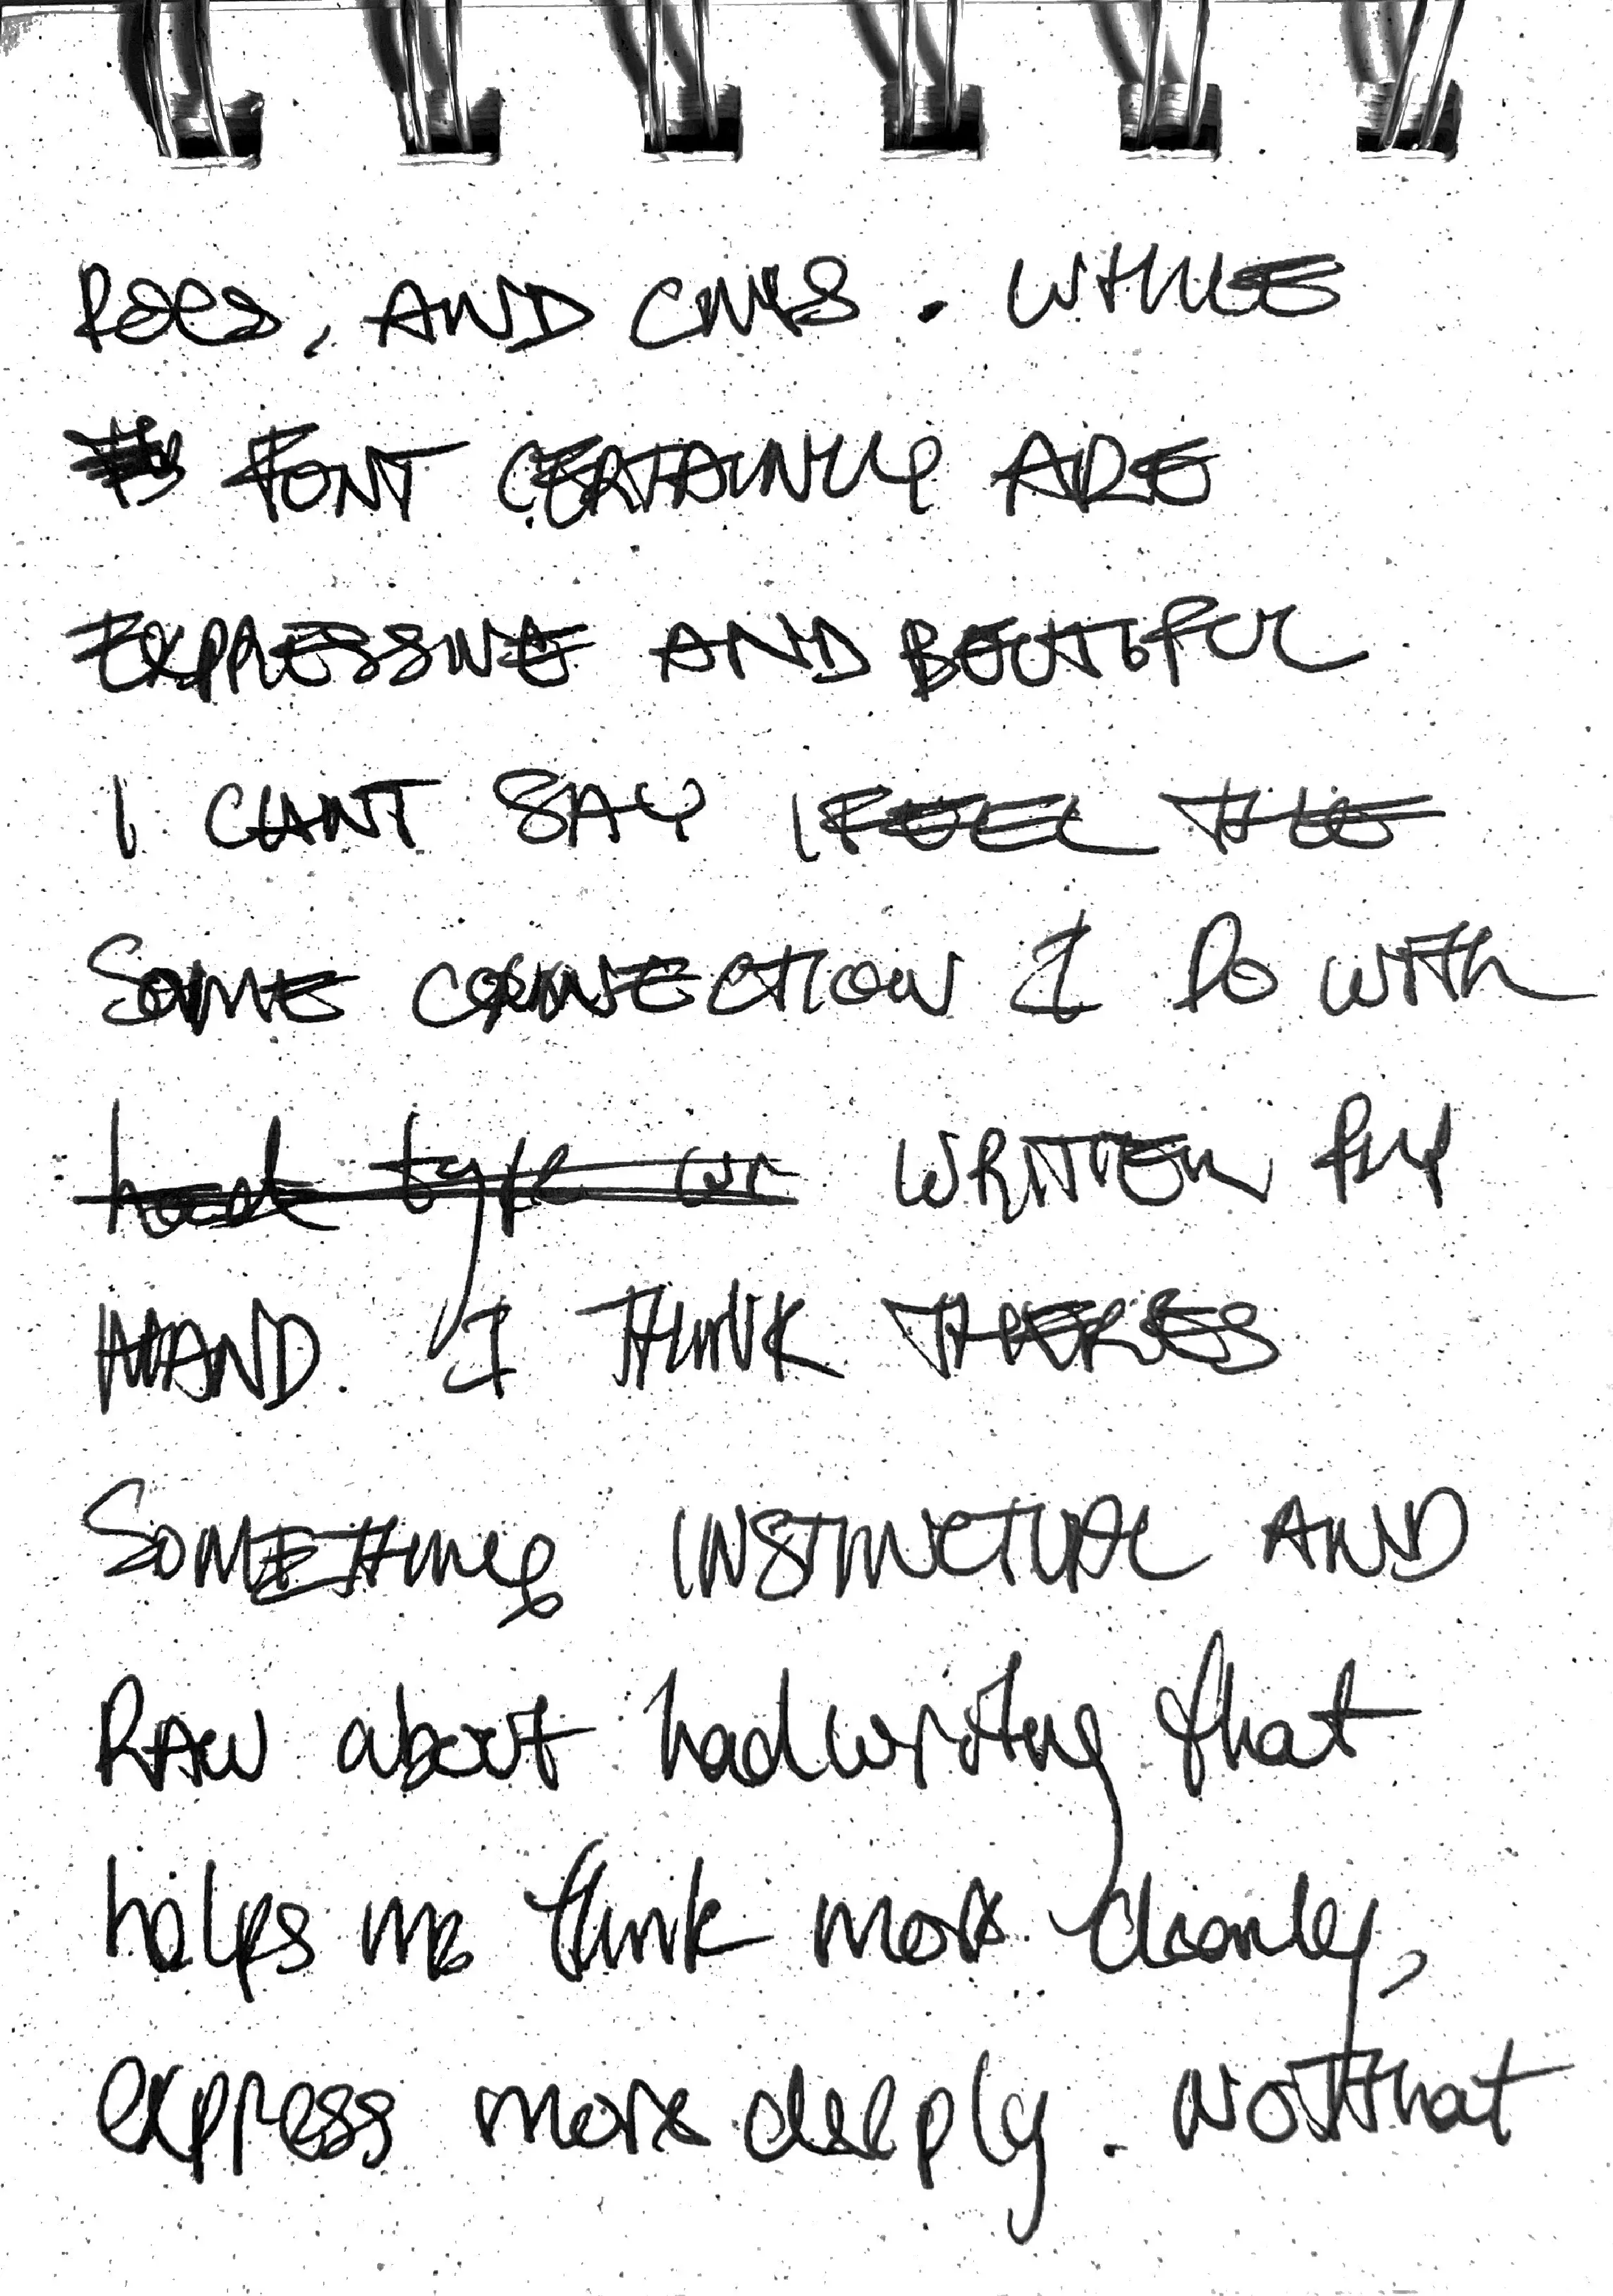 AND CMS. WHILE
FONT CERTAINLY ARE
EXPRESSIVE AND BEUTIFUL
I CANT SAY I FEEL THE
SAME CONNECTION I DO WITH
type or WRITTEN BY
HAND. I THINK THERES
SOMETHING INSTINCTUAL AND
RAW about hadwriting that
helps me think more clearly,
express more deeply. NOT that